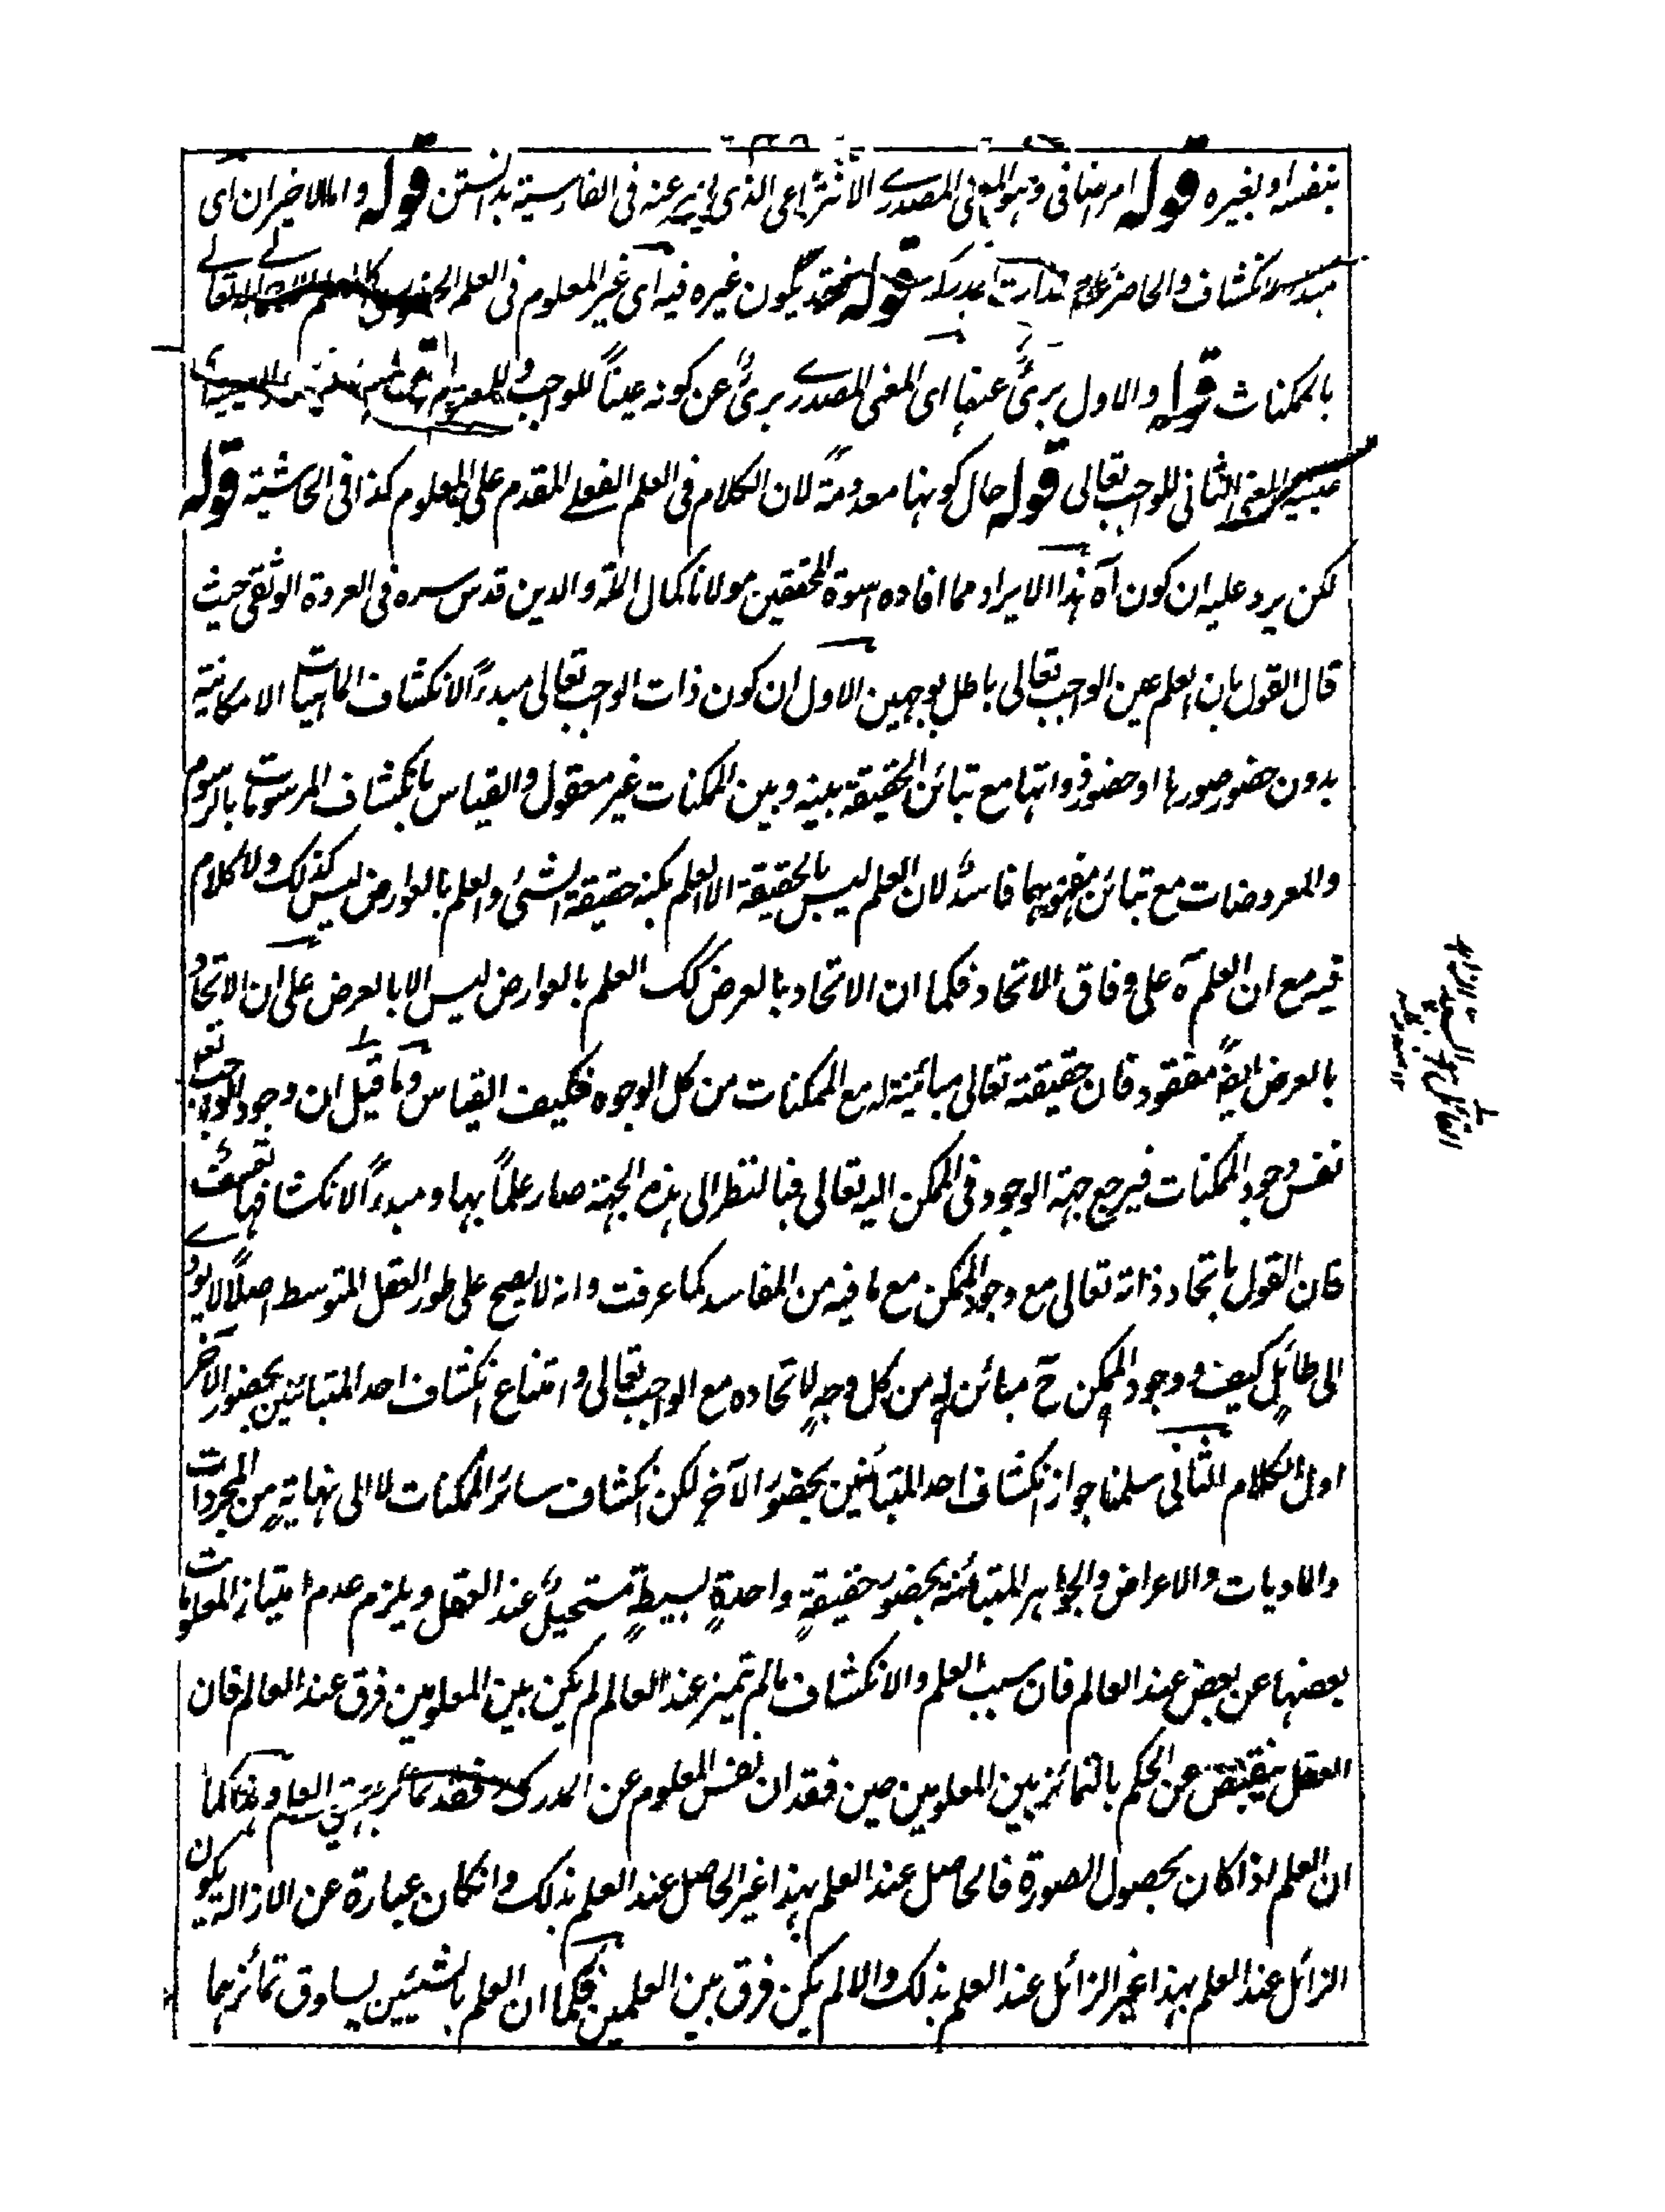 بنفسه او بغيره قوله امر اضافى وهو المعنى المصدرے الانتزاعى الذى يعبر عنه فى الفارسية بدانستن قوله واما الاخيران اى
مبدء الانكشاف والحاضر عند المدرك قوله فقد يكون غيره فيه اى غير المعلوم فى العلم
بالممكنات قوله والاول برئٌ عنها اى المعنى المصدرے برئٌ عن كونه عيناً للواجب
عينية المعنى الثانى للواجب تعالى قوله حال كونها معدومةً لان الكلام فى العلم الفعلے المقدم على المعلوم كذا فى الحاشية قوله
لكن يرد عليه ان كون آه هذا الايراد مما افاده اسوة المحققين مولانا كمال الملة والدين قدس سره فى العروة الوثقى حيث
قال القول بان العلم عين الواجب تعالى باطل بوجهين الاول ان كون ذات الواجب تعالى مبدءً الانكشاف الماهيات الامكانية
بدون حضور صورها او حضور ذواتها مع تبائن الحقيقة بينه وبين الممكنات غير معقول والقياس بانكشاف المرسومات بالرسوم
والمعروضات مع تبائن مفهومهما فاسدٌ لان العلم ليس بالحقيقة الا العلم بكنه حقيقة الشئ والعلم بالعوارض ليس كذلك ولا كلام
فيه مع ان العلم آه على وفاق الاتحاد فكما ان الاتحاد بالعرض كك العلم بالعوارض ليس الا بالعرض على ان الاتحاد
بالعرض ايضاً مفقود فان حقيقته تعالى مبائنية له مع الممكنات من كل الوجوه فكيف القياس وما قيل ان وجود الواجب تعم
نفس وجود الممكنات فيرجع جهة الوجود فى الممكن اليه تعالى فبالنظر الى هذه الجهة صار علماً بها ومبدءً الانكشافها تعسفٌ
فان القول باتحاد ذاته تعالى مع وجود الممكن مع ما فيه من المفاسد كما عرفت وانه لا يصح على طور العقل المتوسط اصلاً لا يودے
الى طائلٍ كيف ووجود الممكن حٓ مبائن له من كل وجهٍ لاتحاده مع الواجب تعالى وامتناع انكشاف احد المتبائنين بحضور الآخر
اول الكلام الثانى سلمنا جواز انكشاف احد المتبائنين بحضور الآخر لكن انكشاف سائر الممكنات لا الى نهايةٍ من المجردات
والماديات والاعراض والجواهر المتبائنة بحضور حقيقةٍ واحدةٍ بسيطةٍ مستحيلٌ عند العقل ويلزم عدم امتياز المعلومات
بعضها عن بعض عند العالم فان سبب العلم والانكشاف مالم تميز عند العالم لم يكن بين المعلومين فرق عند العالم فان
العقل ينقبض عن الحكم بالتمائز بين المعلومين حين فقدان نفس المعلوم عن المدرك فكما
ان العلم اذا كان بحصول الصورة فالحاصل عند العلم بهذا غير الحاصل عند العلم بذلك وانكان عبارة عن الازالة يكون
الزائل عند العلم بهذا غير الزائل عند العلم بذلك والا لم يكن فرق بين العلمين فكما ان العلم بالشيئين يساوق تمائزهما